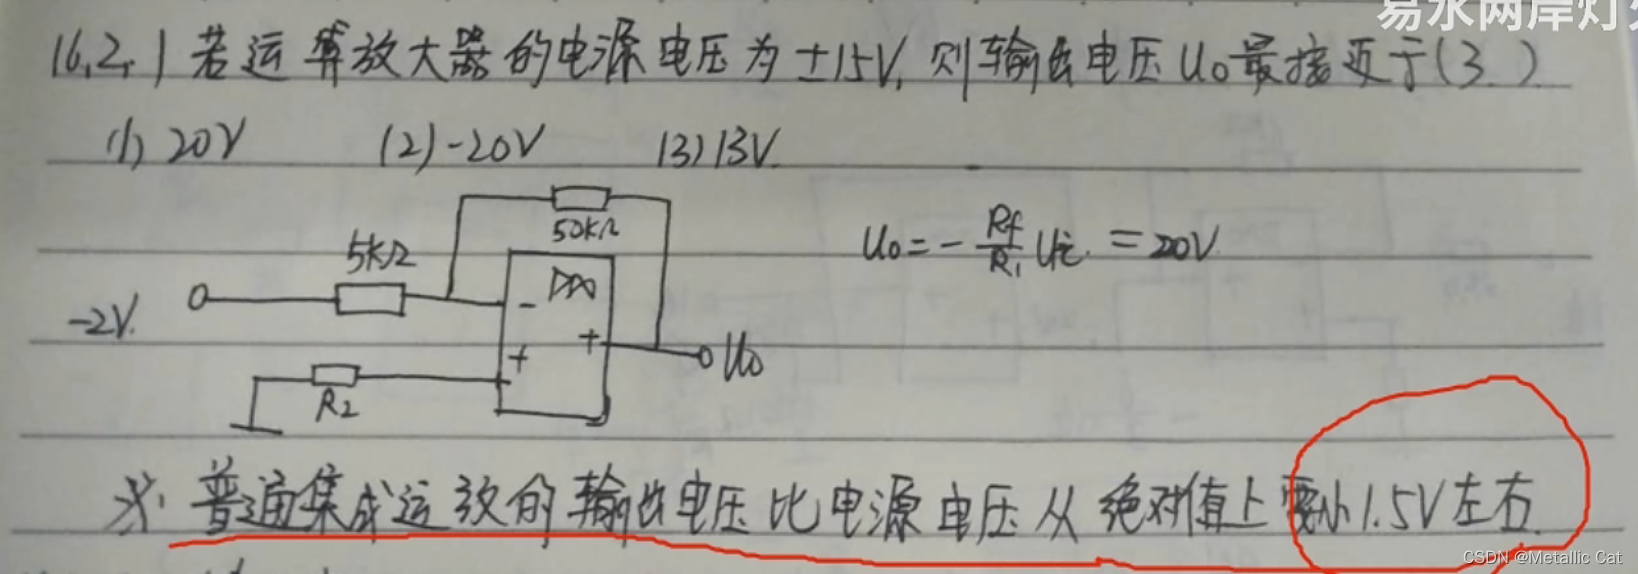 易水两岸灯
16.2.1 若运算放大器的电源电压为±15V,则输出电压U₀最接近于(3.)
(1) 20V (2) -20V (3) 13V.
50kΩ
5kΩ
U₀ = - Rf/R₁ Ui. = 20V.
▷∞
-
-2V.
+
+
U₀
R₂
※. 普通集成运放的输出电压比电源电压从绝对值上要小1.5V左右.
CSDN @Metallic Cat